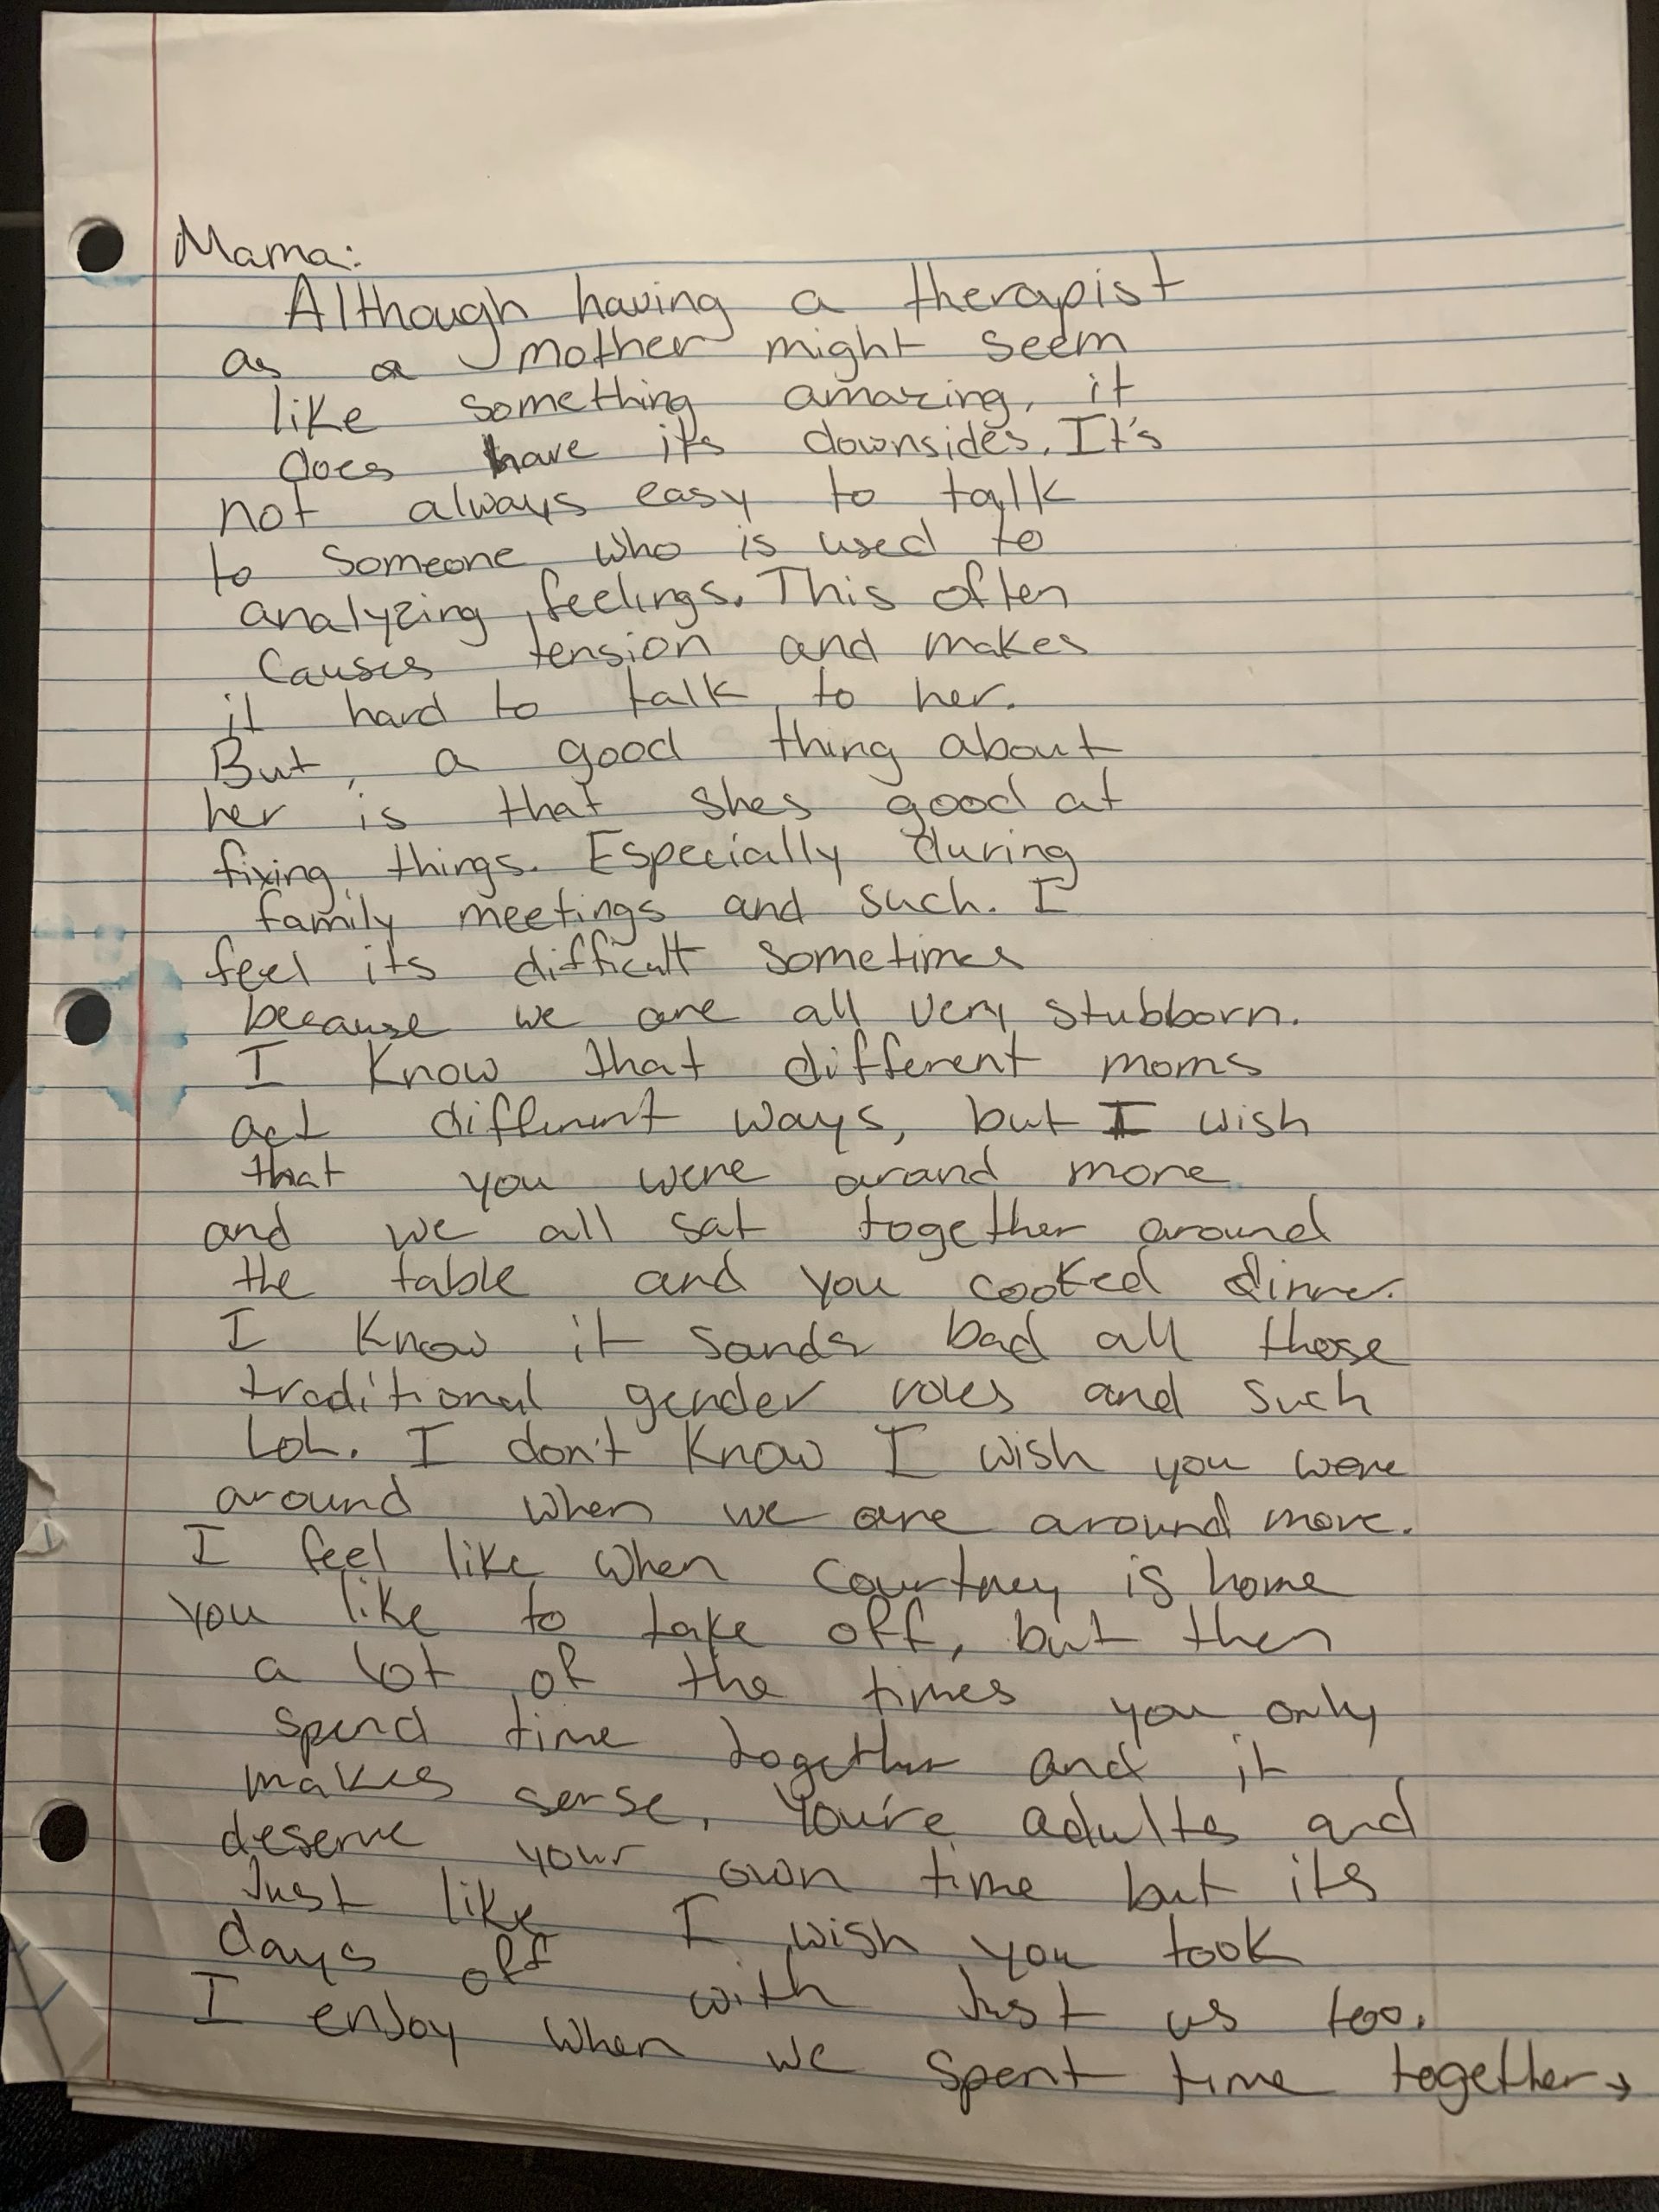 Mama:
Although having a therapist
as a mother might seem
like something amazing, it
does have its downsides. It's
not always easy to talk
to someone who is used to
analyzing feelings. This often
causes tension and makes
it hard to talk to her.
But, a good thing about
her is that shes good at
fixing things. Especially during
family meetings and such. I
feel its difficult sometimes
because we are all very stubborn.
I know that different moms
act different ways, but I wish
that you were arand more
and we all sat together around
the table and you cooked dinner.
I know it sands bad all those
traditional gender roles and such
LoL. I don't know I wish you were
around when we are around more.
I feel like when Courtney is home
you like to take off, but then
a lot of the times you only
spend time together and it
makes sense. You're adults and
deserve your own time but its
Just like I wish you took
days off with Just us too.
I enjoy when we spent time together→